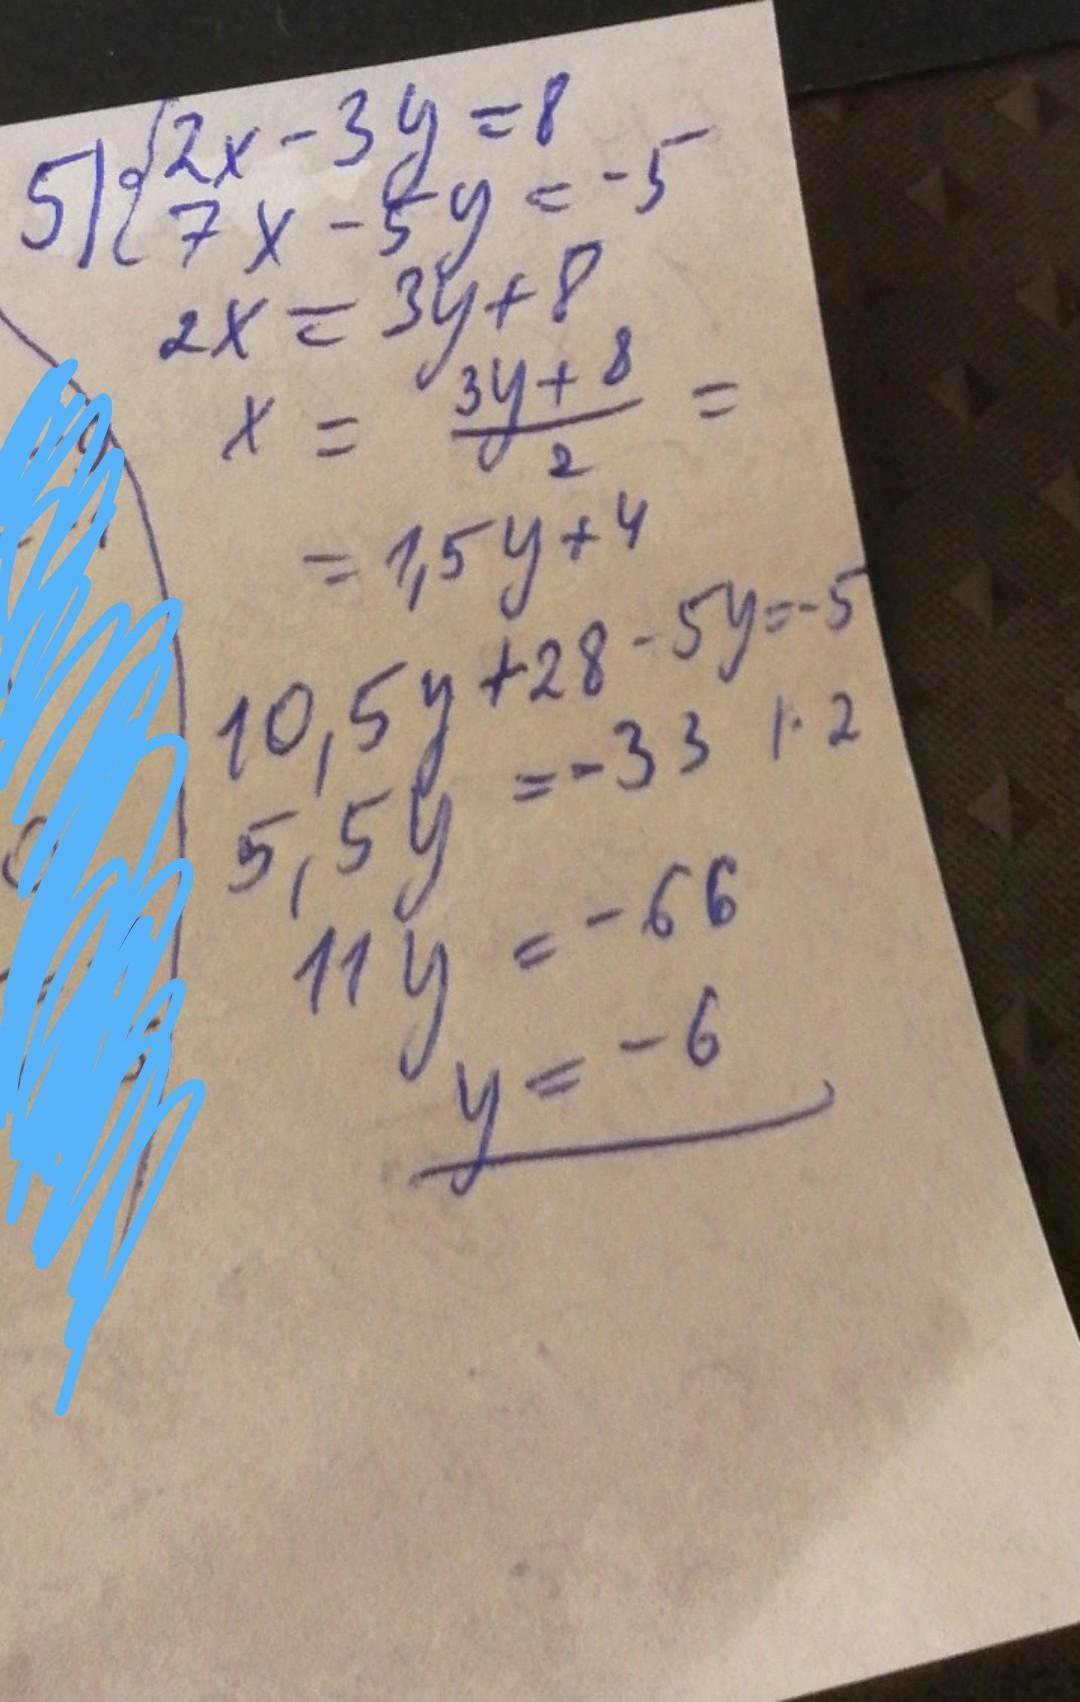 5) { 2x - 3y = 8
7x - 5y = -5
2x = 3y + 8
x = (3y + 8)/2 =
= 1,5y + 4
10,5y + 28 - 5y = -5
5,5y = -33 | · 2
11y = -66
y = -6